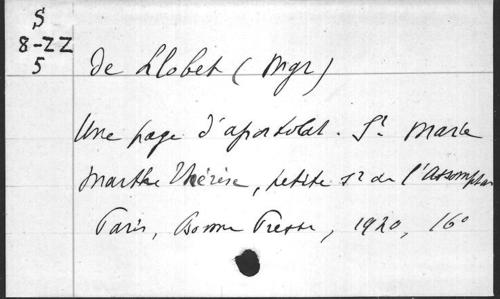 S
8-ZZ
5
de Llobet (Mgr)
Une page d'apostolat. Sr Marie
Marthe Thérèse, petite sr de l'Assomption
Paris, Bonne Presse, 1920, 16°